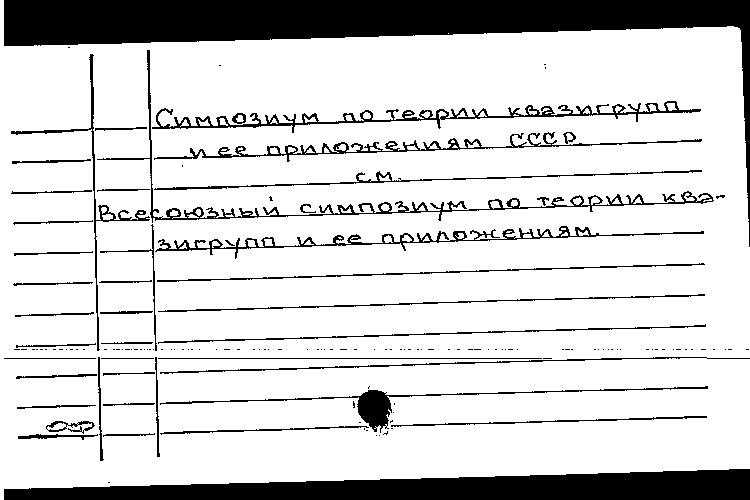 Симпозиум по теории квазигрупп
и ее приложениям СССР.
см.
Всесоюзный симпозиум по теории ква-
зигрупп и ее приложениям.